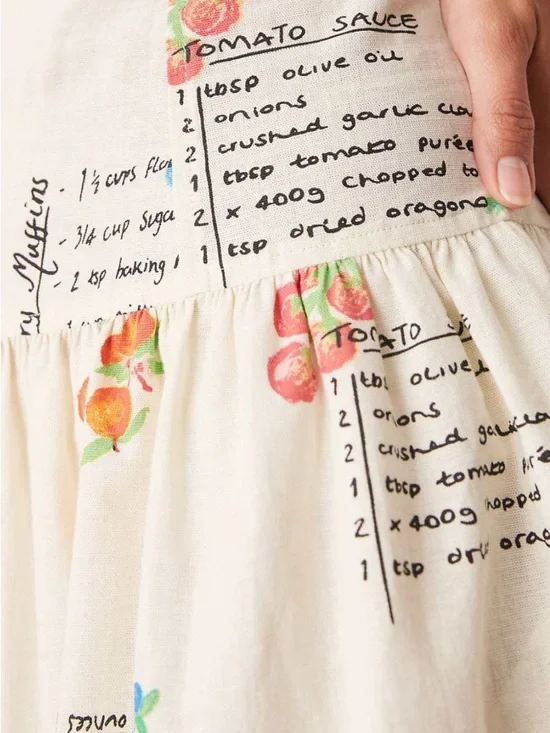 TOMATO SAUCE
1 tbsp olive oil
2 onions
2 crushed garlic clo
1 tbsp tomato purée
2 x 400g chopped to
1 tsp dried oragono
ry Muffins
- 1 ½ cups flo
- 3/4 cup suga
- 2 tsp baking
TOMATO
1 tbs olive
2 onions
2 crushed garlic clo
1 tbsp tomato purée
2 x 400g hopped
1 tsp dri orag
ounces